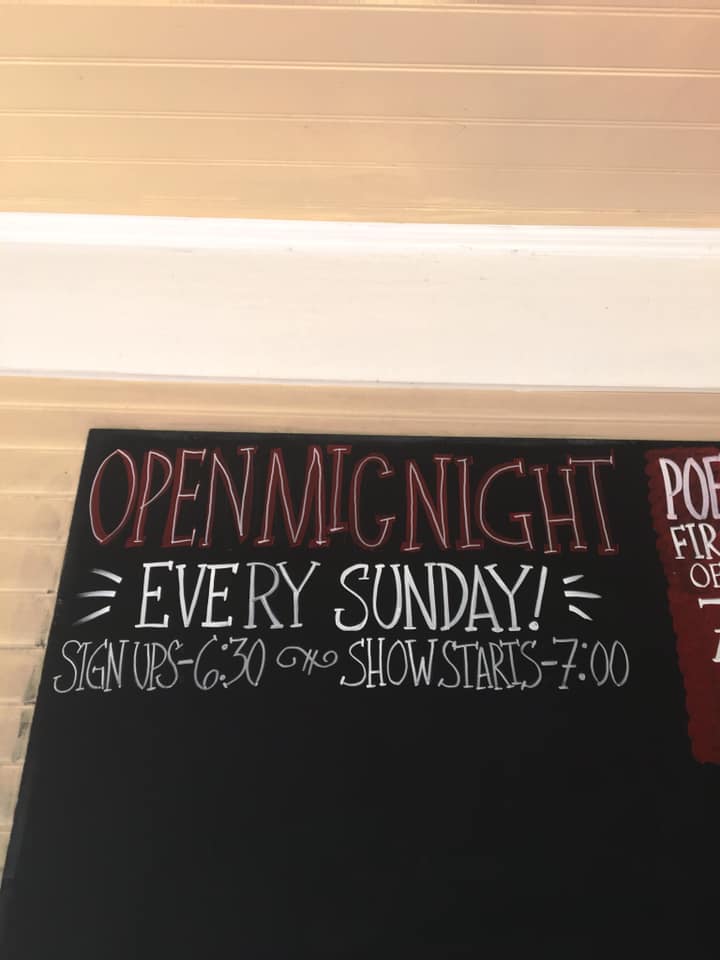 OPEN MIC NIGHT
EVERY SUNDAY!
SIGN UPS-6:30 SHOW STARTS-7:00